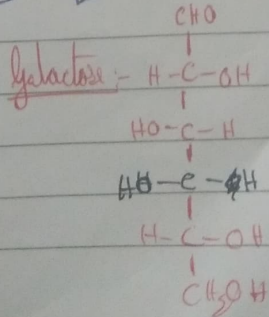 CHO
Galactose :- H-C-OH
HO-C-H
HO-C-H
H-C-OH
CH₂OH